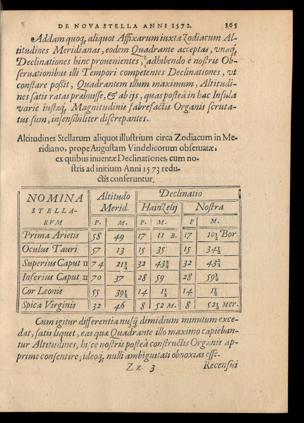 DE NOVA STELLA ANNI 1572. 365
Addam quoq; aliquot Affixarum iuxta Zodiacum Al-
titudines Meridianas, eodem Quadrante acceptas, unaq;
Declinationes hinc provenientes, adhibendo e nostris Ob-
servationibus illi Tempori competentes Declinationes, ut
constare possit, Quadrantem illum maximum, Altitudi-
nes satis ratas præbuisse, & ab iis, quas postea in hac Insula
varie instructis, Magnitudinis Organis scruta-
tus sum, insensibiliter discrepantes.
Altitudines Stellarum aliquot illustrium circa Zodiacum in Me-
ridiano, prope Augustam Vindelicorum obseruatæ,
ex quibus inuentæ Declinationes, cum no-
stris ad initium Anni 1573 redu-
ctis conferuntur.
NOMINA STELLA-RUM Altitudo Merid. Declinatio
Hainzelij Nostra
P. M. P. M. P. M.
Prima Arietis 58 49 17 11 B. 17 Bor.
Oculus Tauri 57 13 15 35 15
Superius Caput II 74 32 32
Inferius Caput II 70 37 28 59 28
Cor Leonis 55 14 14
Spica Virginis 32 46 8 52 M. 8 mer.
Cum igitur differentia nusq; dimidium minutum exce-
dat, satis liquet, eas quæ Quadrante illo maximo capieban-
tur Altitudines, hisce nostris postea constructis Organis ap-
prime consentire, ideoq; nulli ambiguitati obnoxias esse.
Zz 3 Recensui